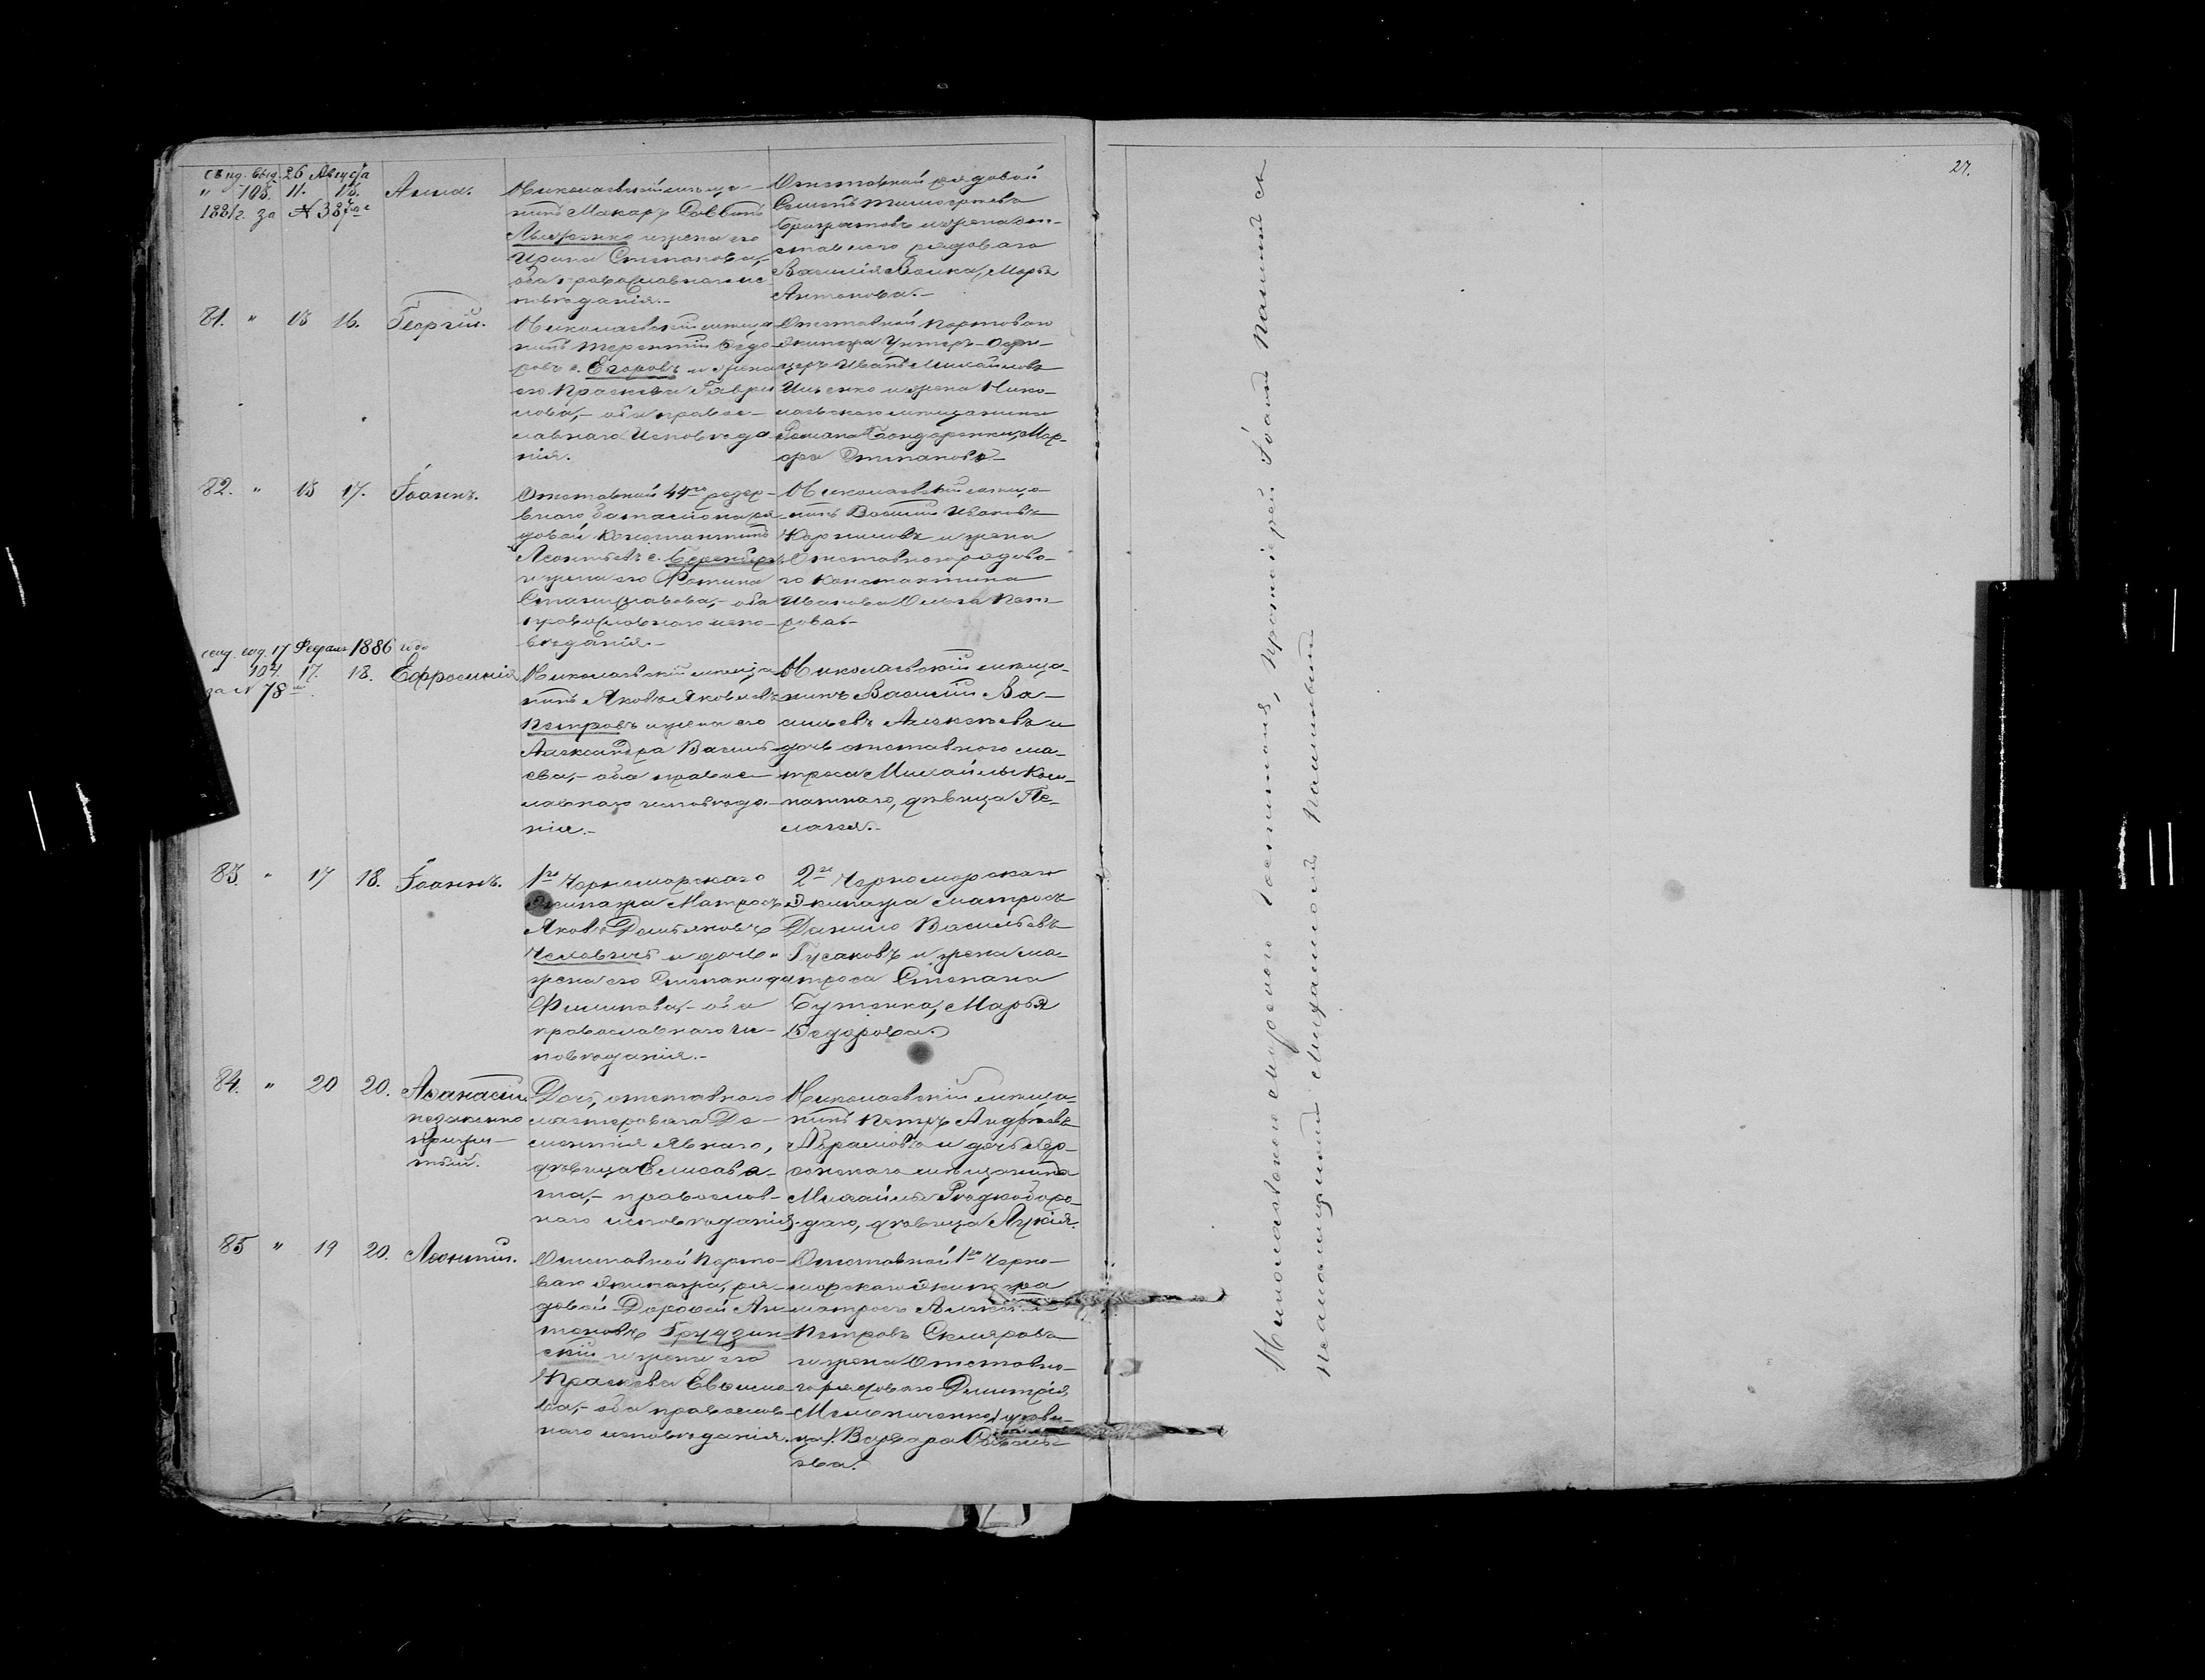 27.
свид. выд. 26 Августа
" 103. 11. 13. Анна.
1881 г. за № 387
Николаевскій мѣща-
нинъ Макаръ Саввинъ
и жена его
Ирина Степанова,-
оба православнаго ис-
повѣданія.-
Отставной рядовой
Семенъ Тимофеевъ
и жена от-
ставнаго рядоваго
Василія Волка, Марѳа
Антонова.-
81. " 13 16. Георгій.
Николаевскій мѣща-
нинъ Терентій Ѳедо-
ровъ с. Егоровъ и жена
его Праскева Гаври-
лова,- оба право-
славнаго исповѣда-
нія.
Отставной портоваго
Экипажа Унтеръ-Офи-
церъ Иванъ Михайловъ
Ильенко и жена Нико-
лаевскаго мѣщанина
Романа Бондаренки, Мар-
ѳа Степанова.-
82. " 13 17. Іоаннъ.
Отставной 44го резер-
внаго баталіона ря-
довой Константинъ
Леонтьевъ с.
и жена его Фотина
Станиславова,- оба
православнаго испо-
вѣданія.-
Николаевскій мѣща-
нинъ Василій Ивановъ
Корниловъ и жена
Отставнаго рядова-
го Константина
Иванова Ольга Пет-
рова.-
свид. выд. 17 Февраля 1886 года
" 104. 17. 18. Ефросинія
за № 78
Николаевскій мѣща-
нинъ Яковъ Яковлевъ
Петровъ и жена его
Александра Василь-
ева,- оба право-
славнаго исповѣда-
нія.-
Николаевскій мѣща-
нинъ Василій Ва-
сильевъ Алексѣевъ и
дочь отставнаго ма-
троса Михайлы Ком-
натнаго, дѣвица Пе-
лагея.-
83. " 17 18. Іоаннъ.
1го Черноморскаго
Экипажа Матросъ
Яковъ Демьяновъ
и
жена его Степанида
Филипова,- оба
православнаго ис-
повѣданія.-
2го Черноморскаго
Экипажа матросъ
Данило Васильевъ
Гусаковъ и жена ма-
троса Степана
Бутенка, Марья
Ѳедорова.
84. " 20 20. Аѳанасій
незаконно
прижи-
тый.
Дочь отставнаго
мастероваго Де-
ментія Явнаго,
дѣвица Елисаве-
та,- православ-
наго исповѣданія.
Николаевскій мѣща-
нинъ Петръ Андрѣевъ
Абрамовъ и дочь Хер-
сонскаго мѣщанина
Михайлы Рѣдкоборо-
даго, дѣвица Лукія.
85 " 19 20. Леонтій.
Отставной Порто-
ваго Экипажа, ря-
довой Дороѳей Ан-
тоновъ Грудзин-
скій и жена его
Праскева Евѳимо-
ва,- оба православ-
наго исповѣданія.
Отставной 1го Черно-
морскаго Экипажа
матросъ
Петровъ Скляровъ
и жена Отставно-
го рядоваго Дмитрія
Мельниченка,
Варвара
ева.
Николаевскаго Морскаго Госпиталя, протоіерей Іоаннъ
Псаломщикъ